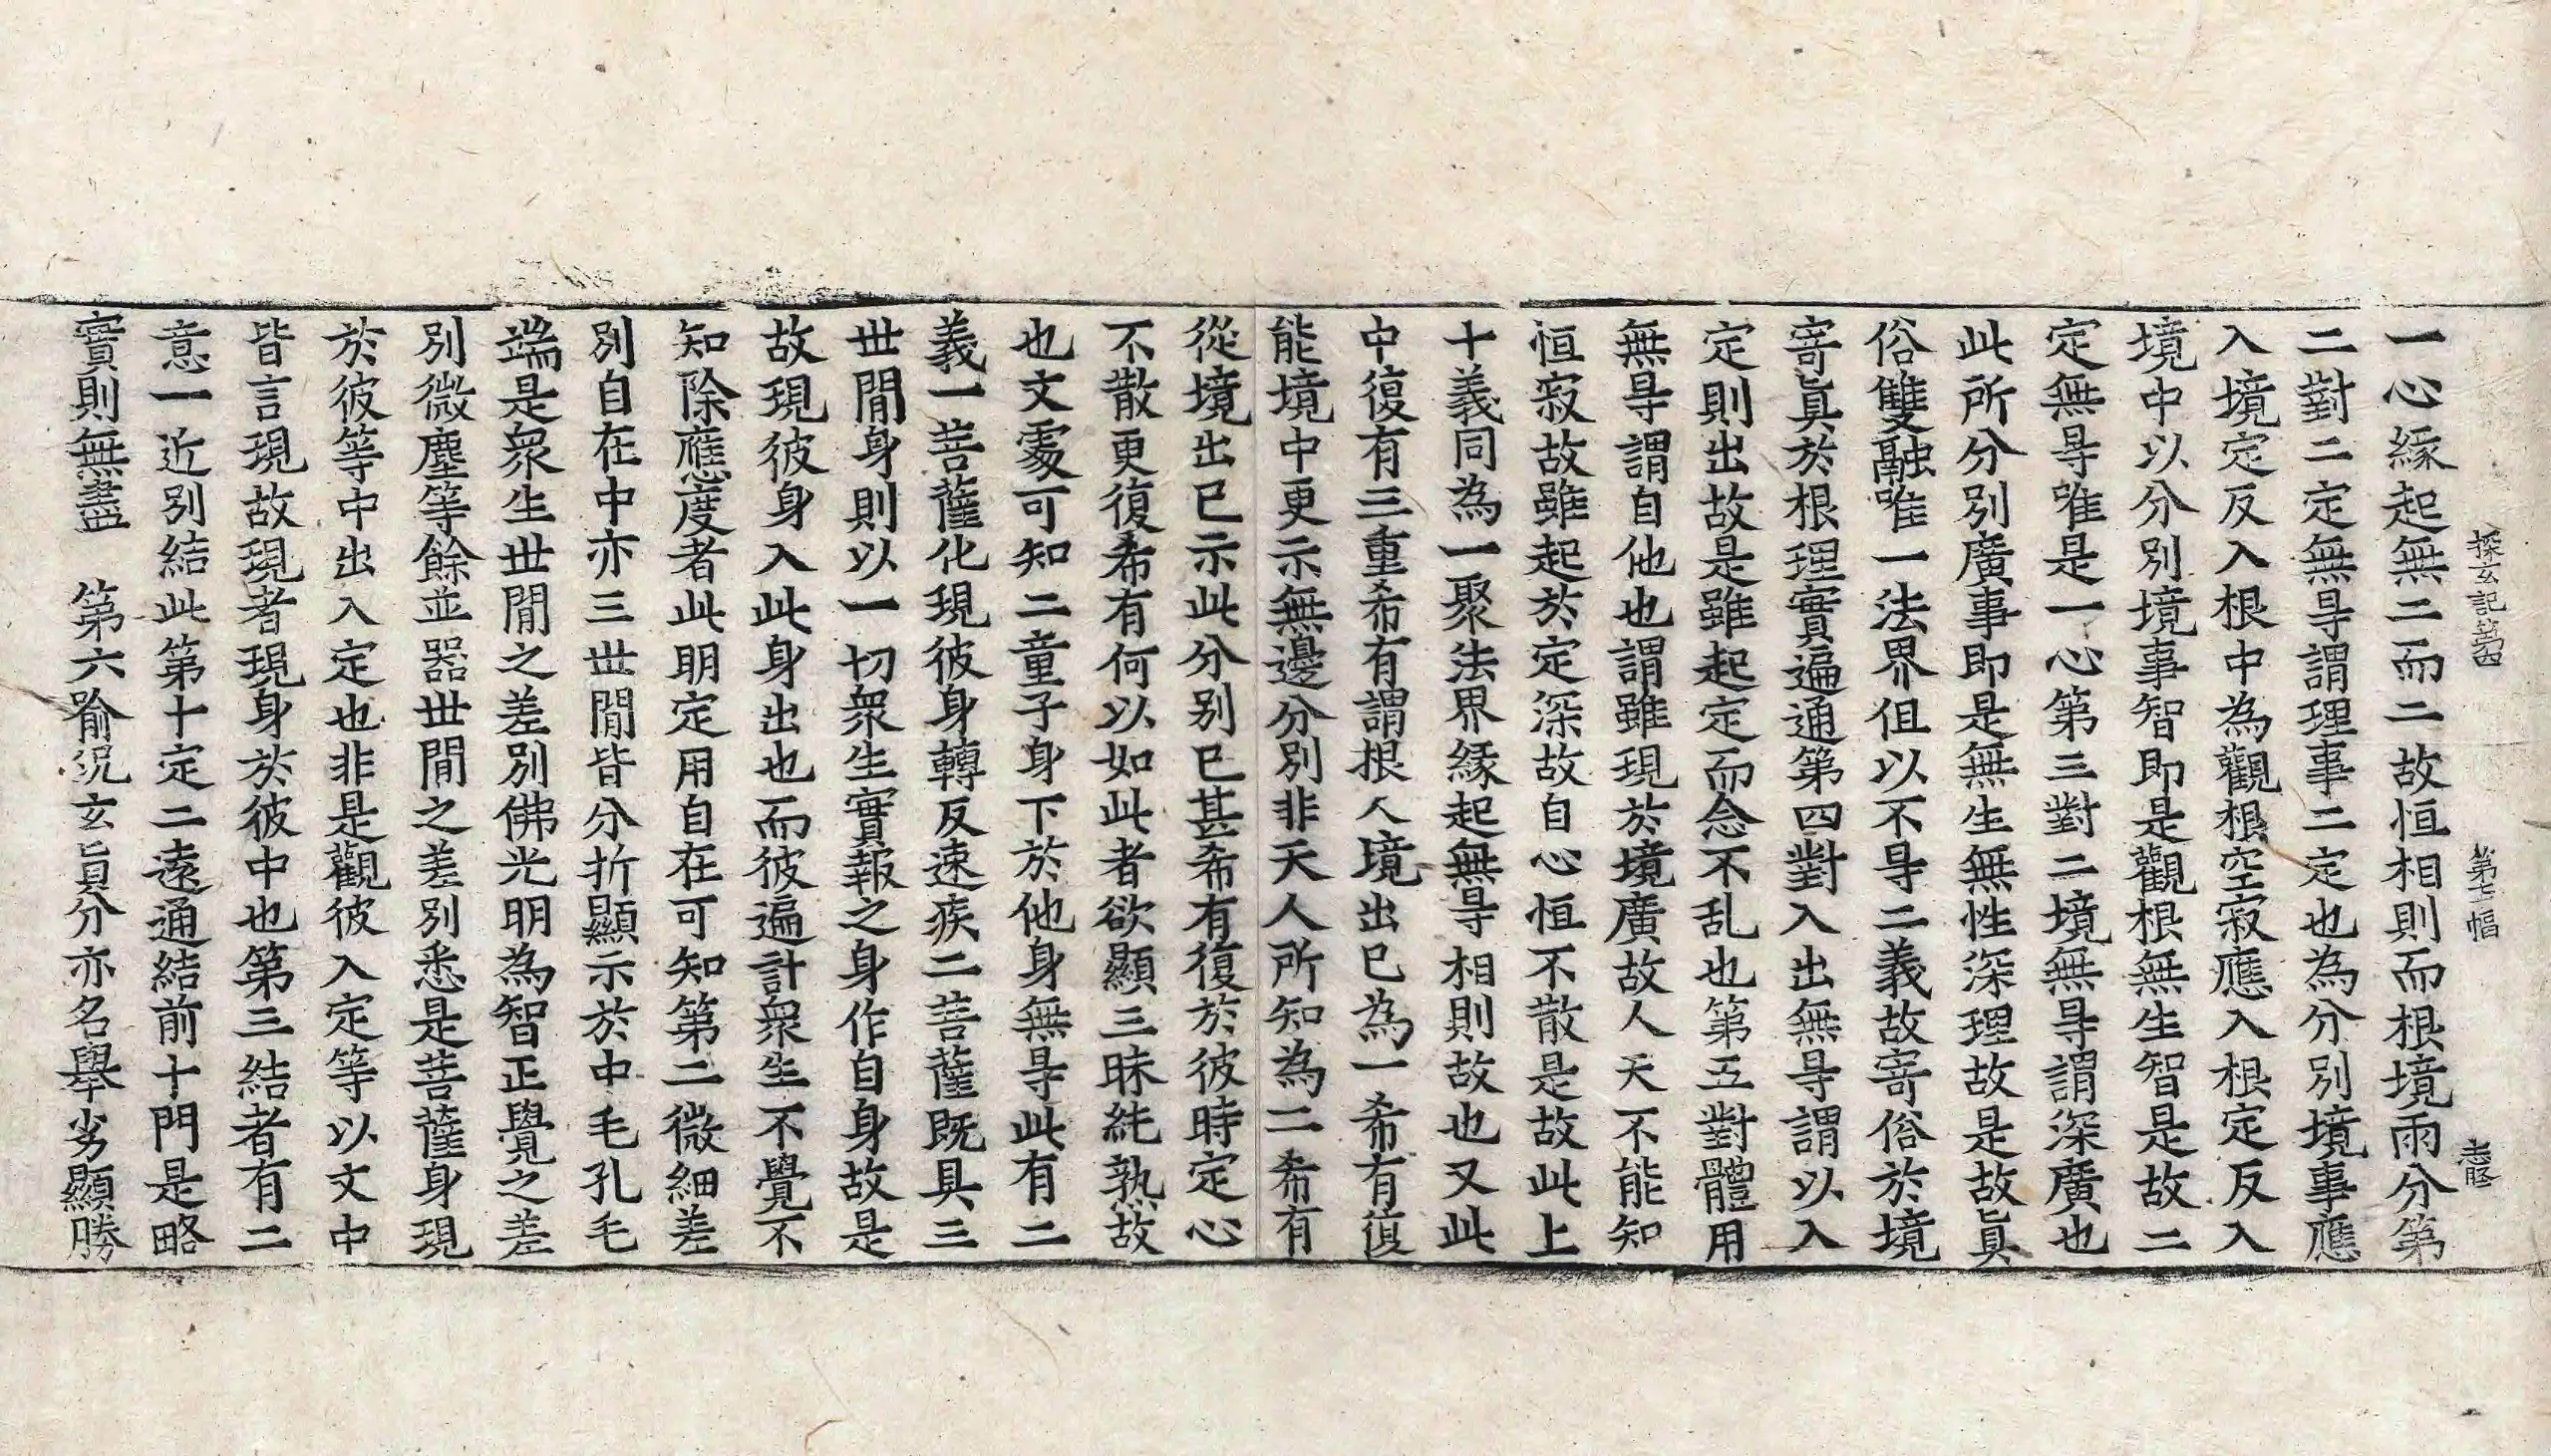 探玄記第四 第十七幅
一心緣起無二而二故恒相則而根境雨分第
二對二定無㝵謂理事二定也為分別境事應
入境定反入根中為觀根空寂應入根定反入
境中以分別境事智即是觀根無生智是故二
定無㝵唯是一心第三對二境無㝵謂深廣也
此所分別廣事即是無生無性深理故是故眞
俗雙融唯一法界但以不㝵二義故寄俗於境
寄眞於根理實遍通第四對入出無㝵謂以入
定則出故是雖起定而念不乱也第五對體用
無㝵謂自他也謂雖現於境廣故人天不能知
恒寂故雖起於定深故自心恒不散是故此上
十義同為一聚法界緣起無㝵相則故也又此
中復有三重希有謂根入境出已為一希有復
能境中更示無邊分別非天人所知為二希有
從境出已示此分别已甚希有復於彼時定心
不散更復希有何以如此者欲顯三昧純熟故
也文䖏可知二童子身下於他身無㝵此有二
義一菩薩化現彼身轉反速疾二菩薩既具三
世間身則以一切衆生實報之身作自身故是
故現彼身入此身出也而彼遍計衆生不覺不
知除應度者此明定用自在可知第二微細差
別自在中亦三世間皆分折顯示於中毛孔毛
端是衆生世間之差別佛光明為智正覺之差
別微塵等餘並器世間之差別悉是菩薩身現
於彼等中出入定也非是觀彼入定等以文中
皆言現故現者現身於彼中也第三結者有二
意一近別結此第十定二遠通結前十門是略
實則無盡 第六喻況玄旨分亦名舉劣顯勝